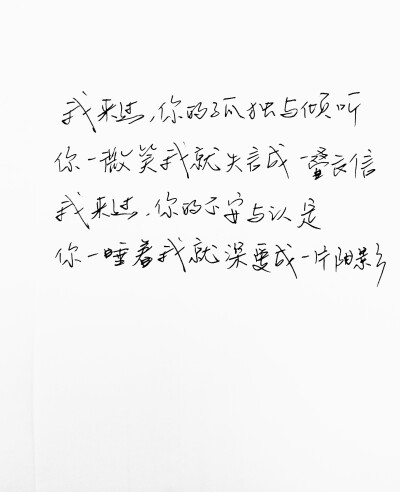 我来过，你的孤独与倾听
你一微笑我就失言成一叠长信
我来过，你的不安与认定
你一睡着我就深爱成一片阴影